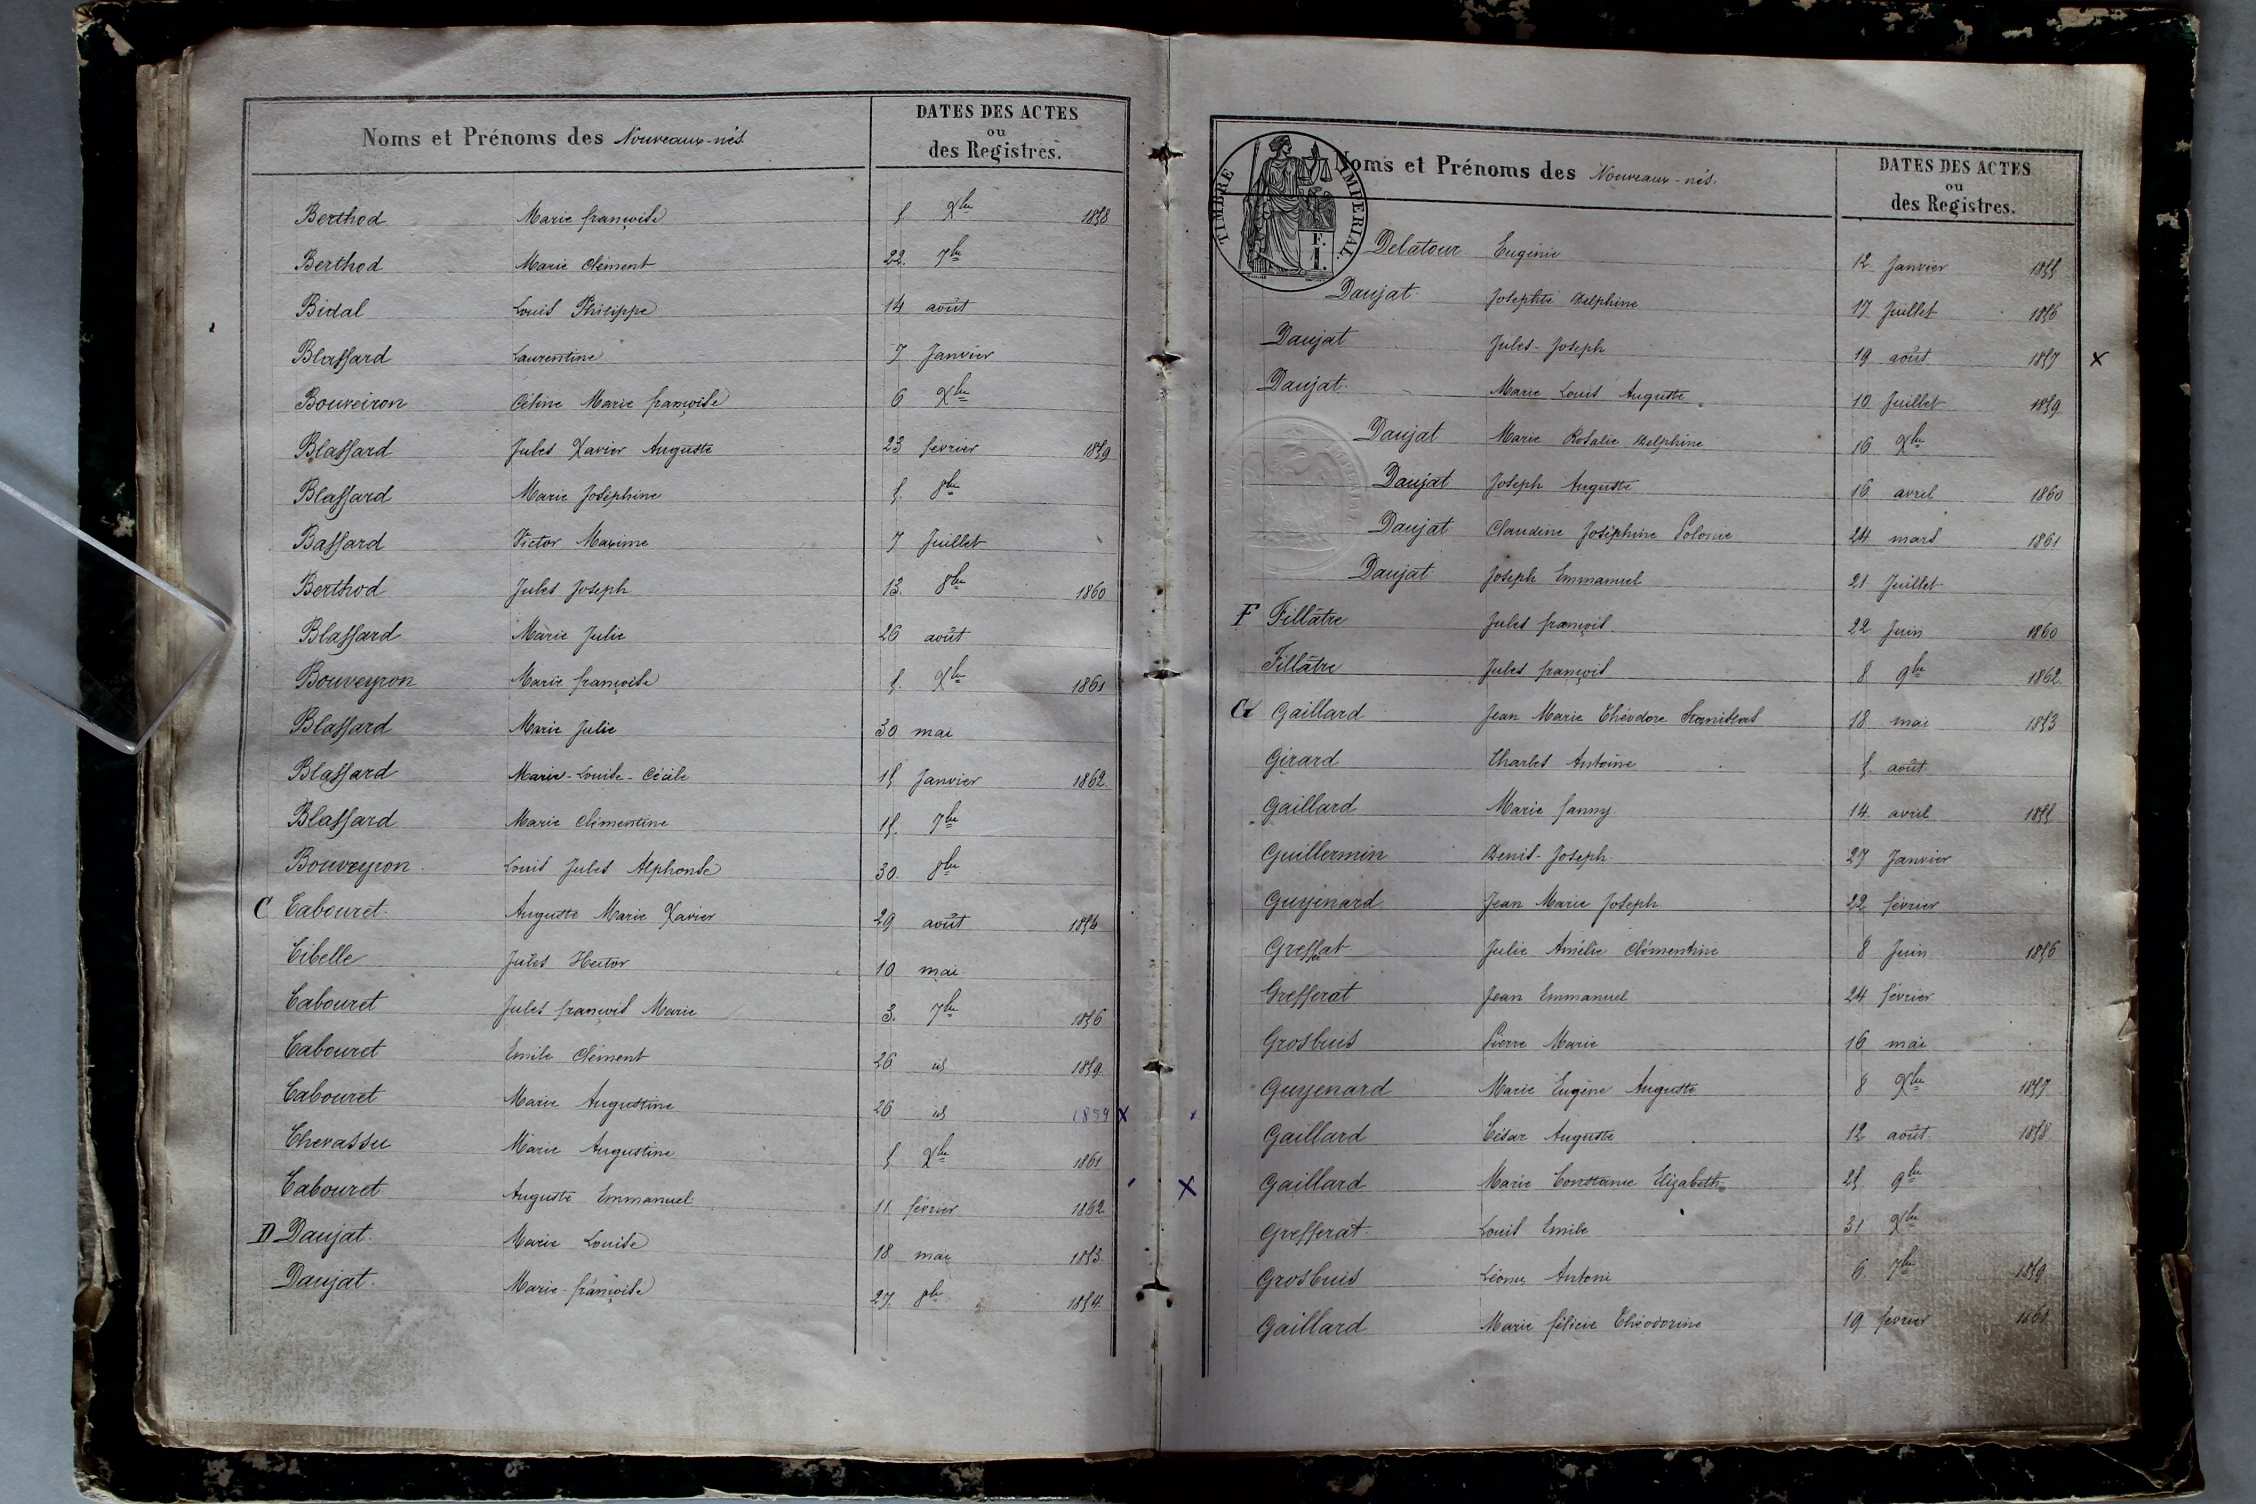 Noms et Prénoms des Nouveaux-nés. DATES DES ACTES
ou
des Registres.
Berthod Marie françoise 5 Xbre 1858
Berthod Marie Clément 22. 7bre
Bidal Louis Philippe 14 août
Blassard Laurentine 7 Janvier
Bouveiron Céline Marie françoise 6 Xbre
Blassard Jules Xavier Auguste 23 février 1859
Blassard Marie Joséphine 5. 8bre
Bassard Victor Maxime 7 Juillet
Berthod Jules Joseph 13. 8bre 1860
Blassard Marie Julie 26 août
Bouveyron Marie françoise 5. Xbre 1861
Blassard Marie Julie 30 mai
Blassard Marie-Louise-Cécile 15 Janvier 1862
Blassard Marie Clémentine 15. 7bre
Bouveyron Louis Jules Alphonse 30. 8bre
C Cabouret Auguste Marie Xavier 29 août 1854
Cibelle Jules Hector 10 mai
Cabouret Jules françois Marie 3. 7bre 1856
Cabouret Emile Clément 26 id 1859.
Cabouret Marie Augustine 26 id 1859 X
Chevassu Marie Augustine 5 Xbre 1861
Cabouret Auguste Emmanuel 11 février 1862
D Daujat Marie Louise 18 mai 1853
Daujat Marie-françoise 27. 8bre 1854
TIMBRE IMPERIAL
F.
1.
Noms et Prénoms des Nouveaux-nés. DATES DES ACTES
ou
des Registres.
Delatour Eugénie 12 Janvier 1855
Daujat Josephte Delphine 17 Juillet 1856
Daujat Jules-Joseph 19 août 1857 X
Daujat Marie Louis Auguste 10 Juillet 1859
Daujat Marie Rosalie Delphine 16 Xbre
Daujat Joseph Auguste 16 avril 1860
Daujat Claudine Joséphine Polonie 24 mars 1861
Daujat Joseph Emmanuel 21 Juillet
F Fillâtre Jules françois 22 Juin 1860
Fillâtre Jules françois 8 9bre 1862
G Gaillard Jean Marie Théodore Stanislas 18 mai 1853
Girard Charles Antoine 5. août
Gaillard Marie fanny 14 avril 1855
Guillermin Denis-Joseph 27 Janvier
Guyénard Jean Marie Joseph 22 février
Greffat Julie Amélie Clémentine 8 Juin 1856
Grefferat Jean Emmanuel 24 février
Grosbuis Pierre Marie 16 mai
Guyenard Marie Eugène Auguste 8 Xbre 1857
Gaillard César Auguste 12 août 1858
X Gaillard Marie Constance Elizabeth 25. 9bre
Grefferat Louis Emile 31 Xbre
Grosbuis Léonie Antoni 6 7bre 1859
Gaillard Marie félicie Théodorine 19 février 1861